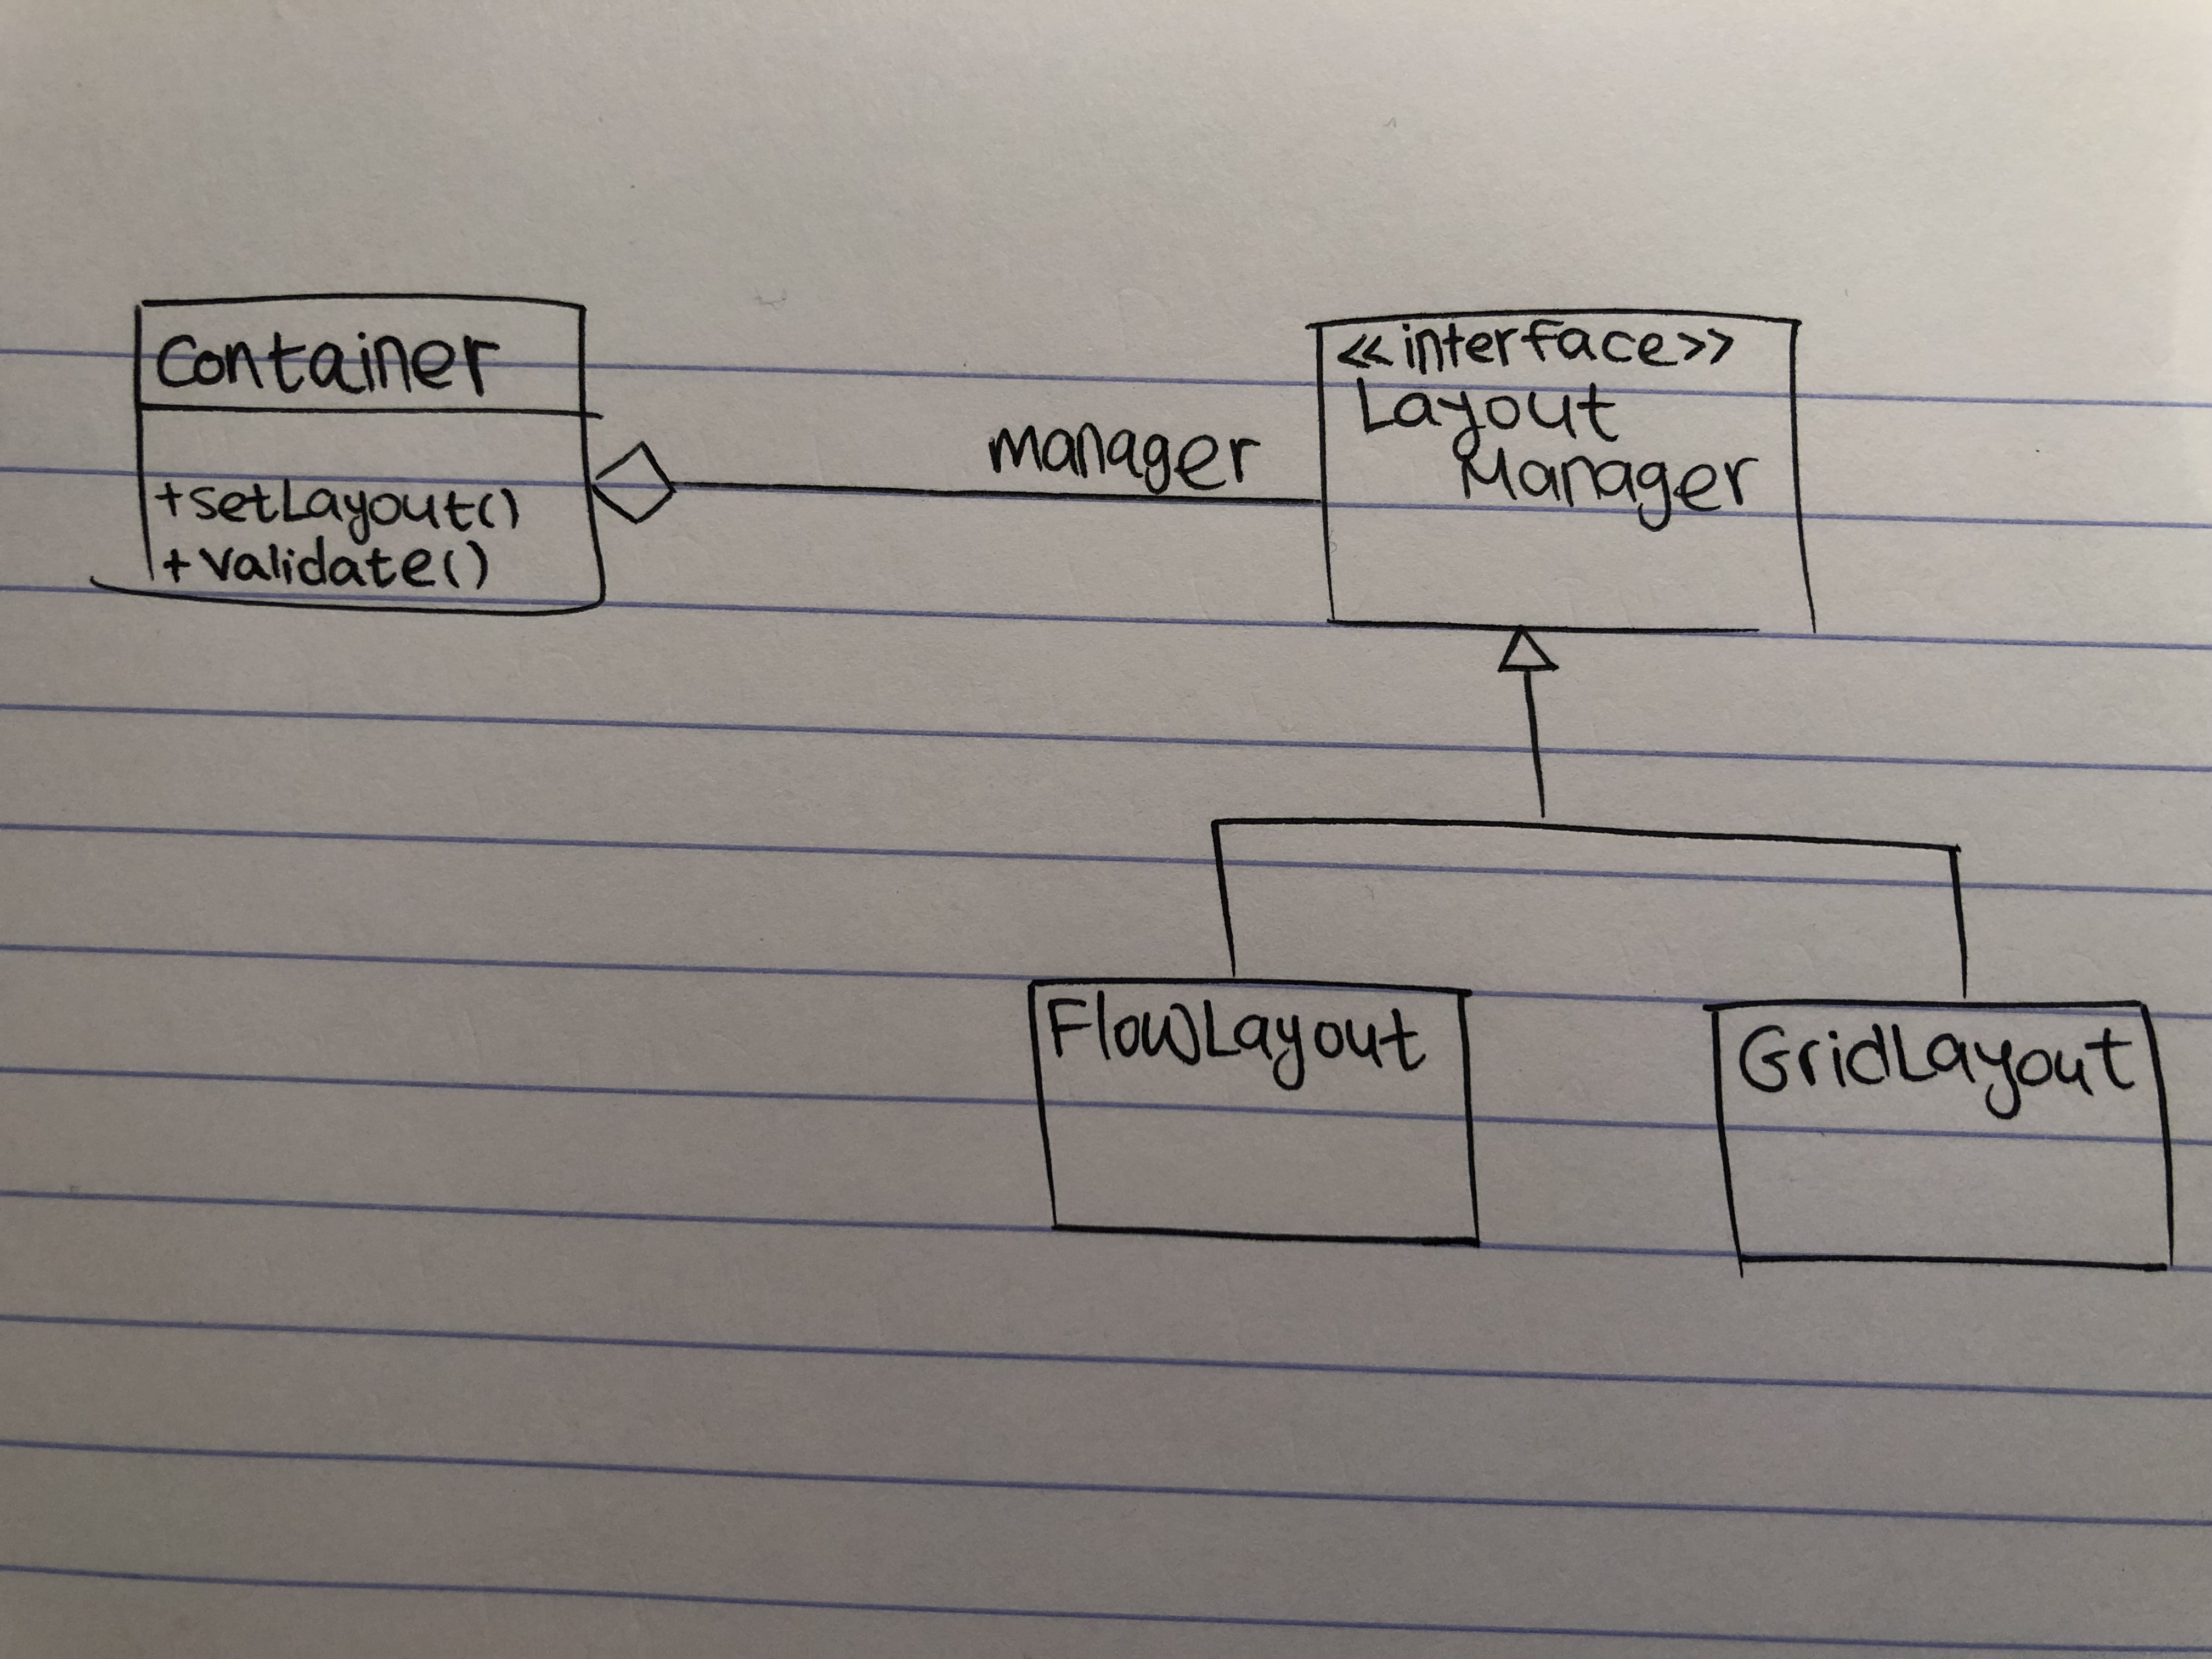 Container
+setLayout()
+validate()
manager
<<interface>>
Layout
Manager
FlowLayout
GridLayout